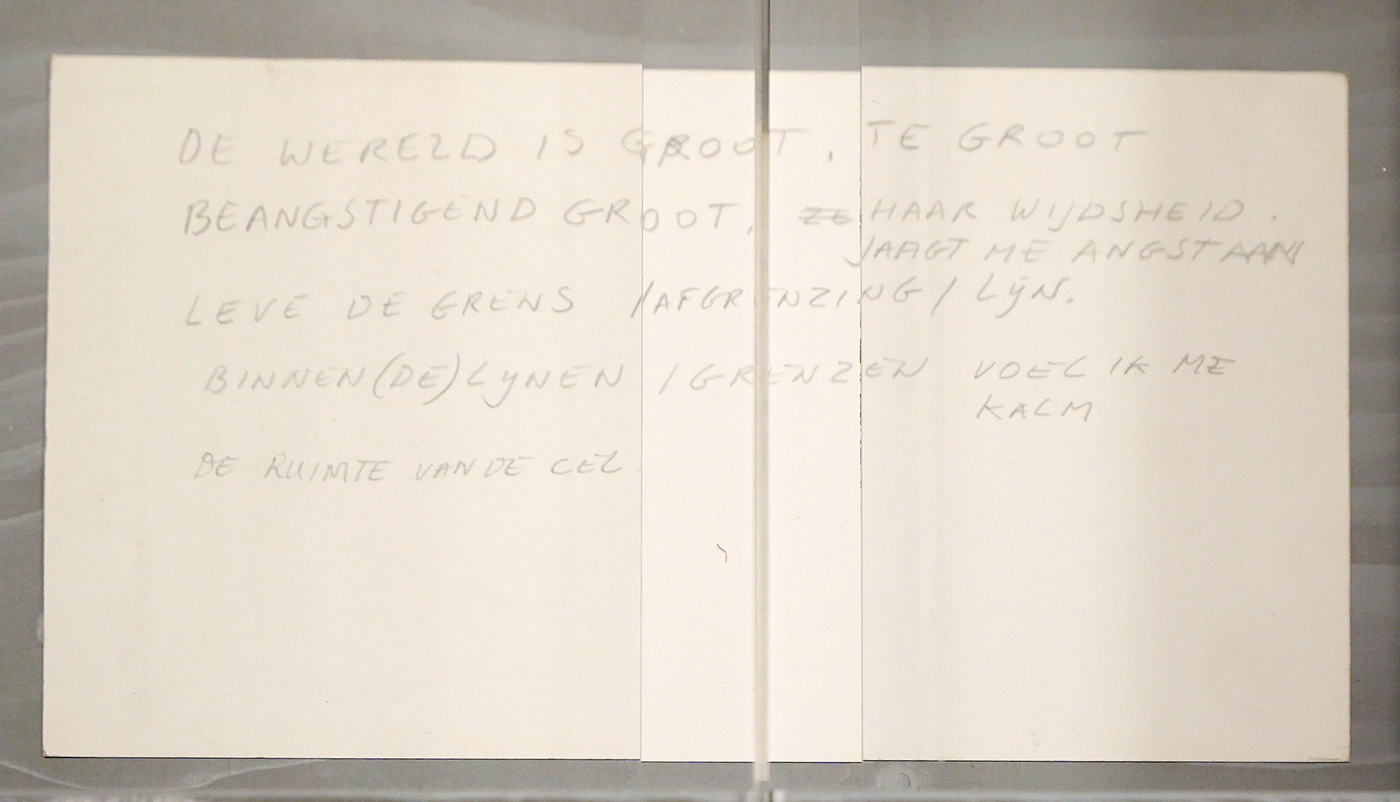 DE WERELD IS GROOT, TE GROOT
BEANGSTIGEND GROOT, ZE HAAR WIJDSHEID.
JAAGT ME ANGST AAN
LEVE DE GRENS /AFGRENZING/ LIJN.
BINNEN (DE) LIJNEN / GRENZEN VOEL IK ME
KALM
DE RUIMTE VAN DE CEL